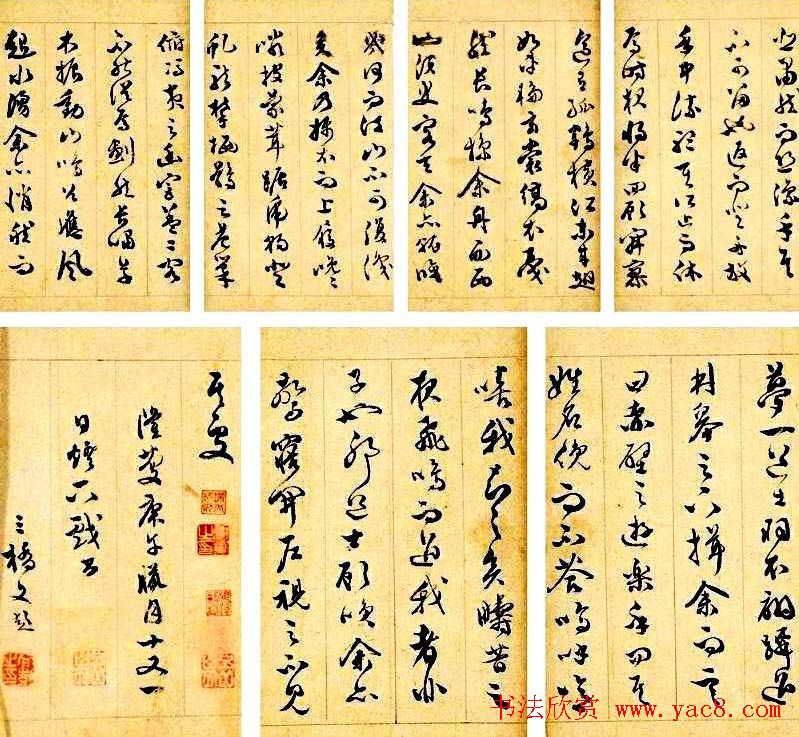 幾何而江山不可復識
矣余乃攝衣而上履巉
巖披蒙茸踞虎豹登
虬龍攀栖鶻之危巢
俯馮夷之幽宮蓋二客
不能從焉劃然長嘯草
木振動山鳴谷應風
起水湧余亦悄然而
悲肅然而恐凜乎其
不可留也返而登舟放
乎中流聽其所止而休
焉時夜將半四顧寂寥
適有孤鶴橫江東來翅
如車輪玄裳縞衣戛
然長鳴掠余舟而西
也須臾客去余亦就睡
夢一道士羽衣翩躚過
臨皋之下揖余而言
曰赤壁之遊樂乎問其
姓名俛而不答嗚呼噫
嘻我知之矣疇昔之
夜飛鳴而過我者非
子也耶道士顧笑余亦
驚寤開戶視之不見
其處
隆慶庚午臘月十又一
日燈下戲書
三橋文彭
书法欣赏 www.yac8.com